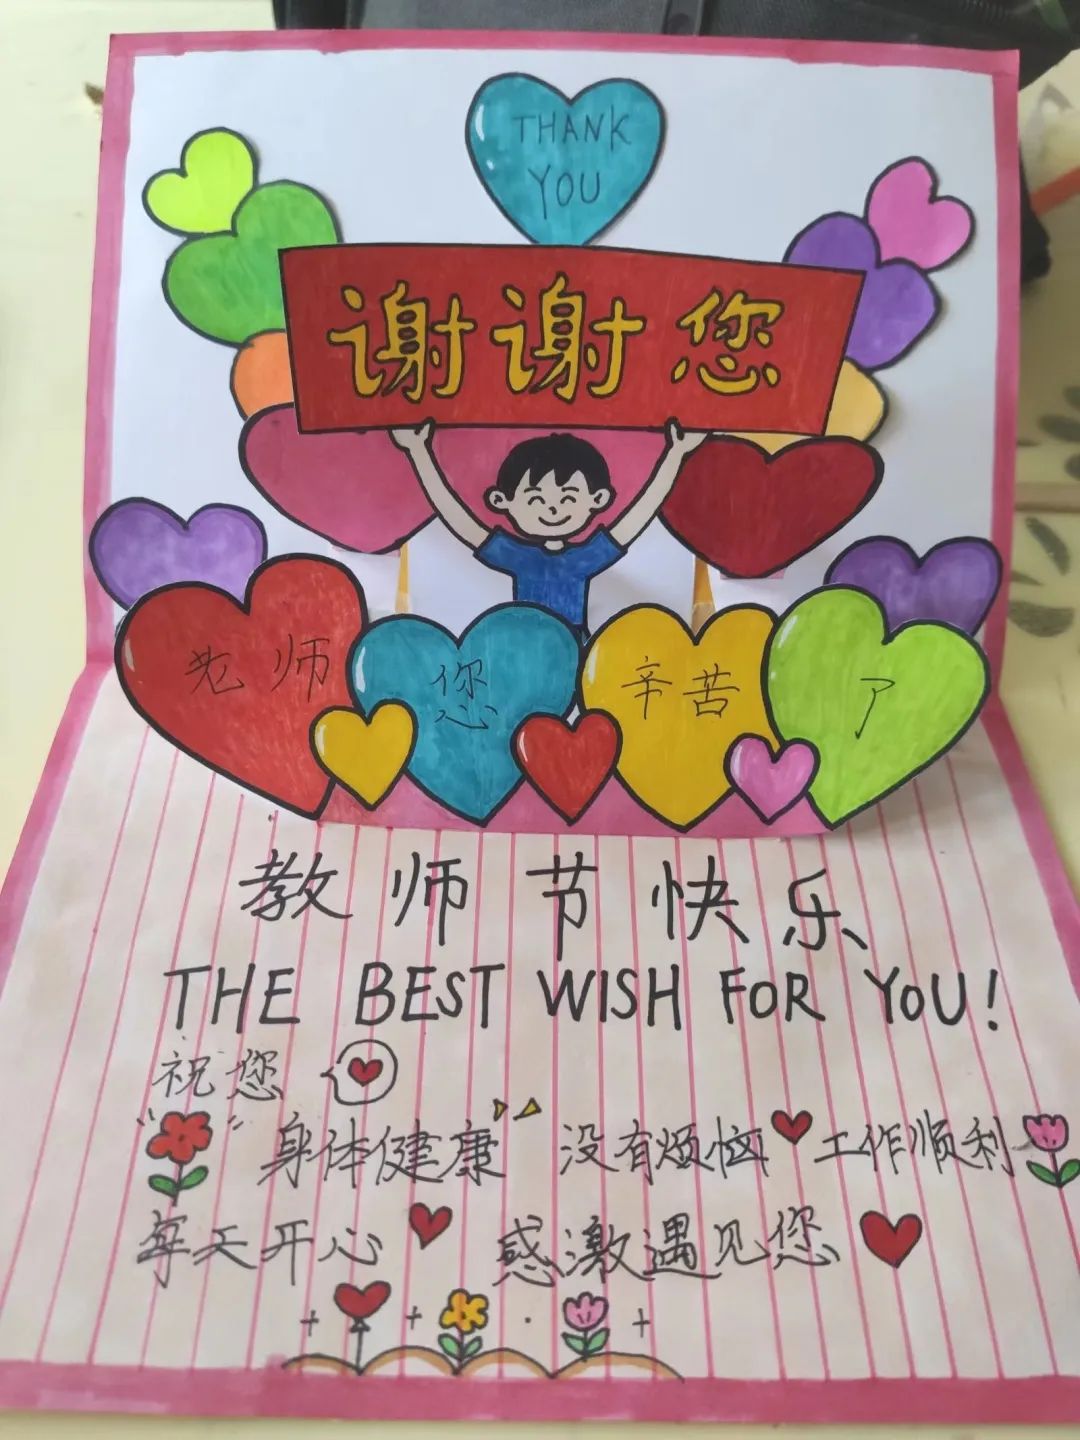 THANK
YOU
谢谢您
老师 您 辛苦 了
教师节快乐
THE BEST WISH FOR YOU!
祝您
身体健康 没有烦恼 工作顺利
每天开心 感激遇见您